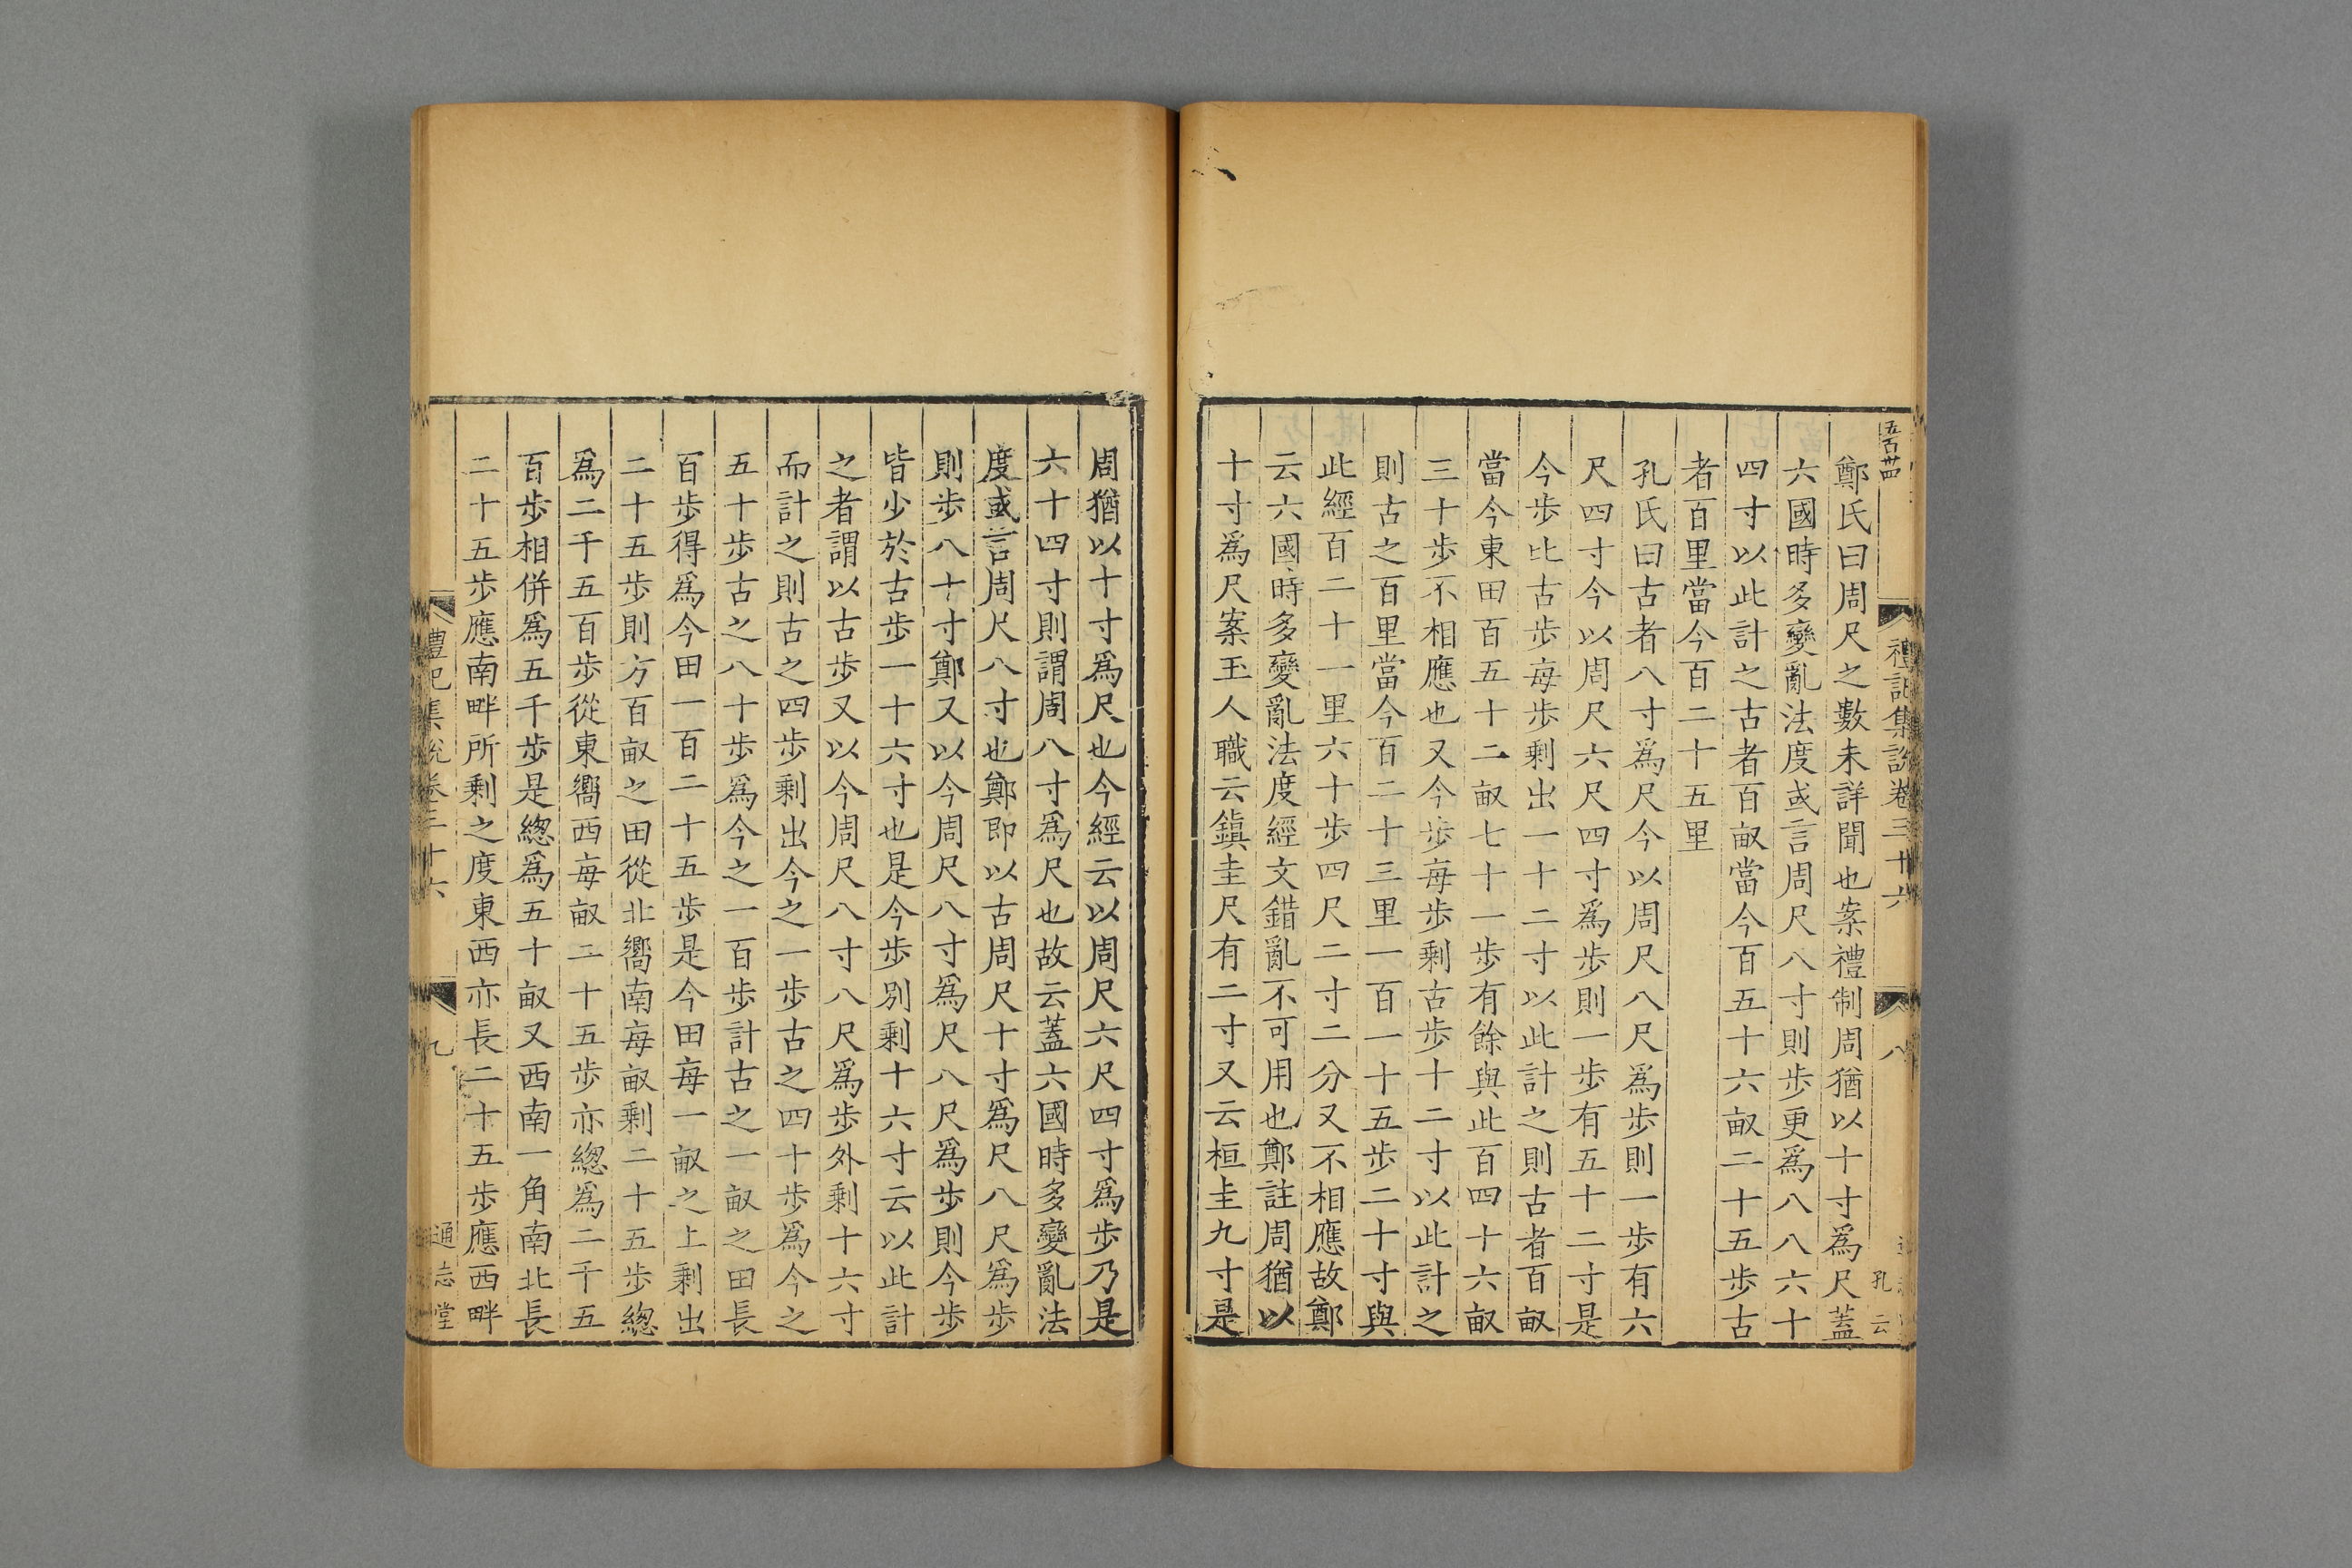 五百卅四
禮記集說卷三十六
八
孔云
鄭氏曰周尺之數未詳聞也案禮制周猶以十寸爲尺蓋
六國時多變亂法度或言周尺八寸則步更爲八八六十
四寸以此計之古者百畝當今百五十六畝二十五步古
者百里當今百二十五里
孔氏曰古者八寸爲尺今以周尺八尺爲步則一步有六
尺四寸今以周尺六尺四寸爲步則一步有五十二寸是
今步比古步每步剩出一十二寸以此計之則古者百畝
當今東田百五十二畝七十一步有餘與此百四十六畝
三十步不相應也又今步每步剩古步十二寸以此計之
則古之百里當今百二十三里一百一十五步二十寸與
此經百二十一里六十步四尺二寸二分又不相應故鄭
云六國時多變亂法度經文錯亂不可用也鄭註周猶以
十寸爲尺案玉人職云鎭圭尺有二寸又云桓圭九寸是
周猶以十寸爲尺也今經云以周尺六尺四寸爲步乃是
六十四寸則謂周八寸爲尺也故云蓋六國時多變亂法
度或言周尺八寸也鄭即以古周尺十寸爲尺八尺爲步
則步八十寸鄭又以今周尺八寸爲尺八尺爲步則今步
皆少於古步一十六寸也是今步別剩十六寸云以此計
之者謂以古步又以今周尺八寸八尺爲步外剩十六寸
而計之則古之四步剩出今之一步古之四十步爲今之
五十步古之八十步爲今之一百步計古之一畝之田長
百步得爲今田一百二十五步是今田每一畝之上剩出
二十五步則方百畝之田從北嚮南每畝剩二十五步總
爲二千五百步從東嚮西每畝二十五步亦總爲二千五
百步相併爲五千步是總爲五十畝又西南一角南北長
二十五步應南畔所剩之度東西亦長二十五步應西畔
禮記集說卷三十六
九
通志堂